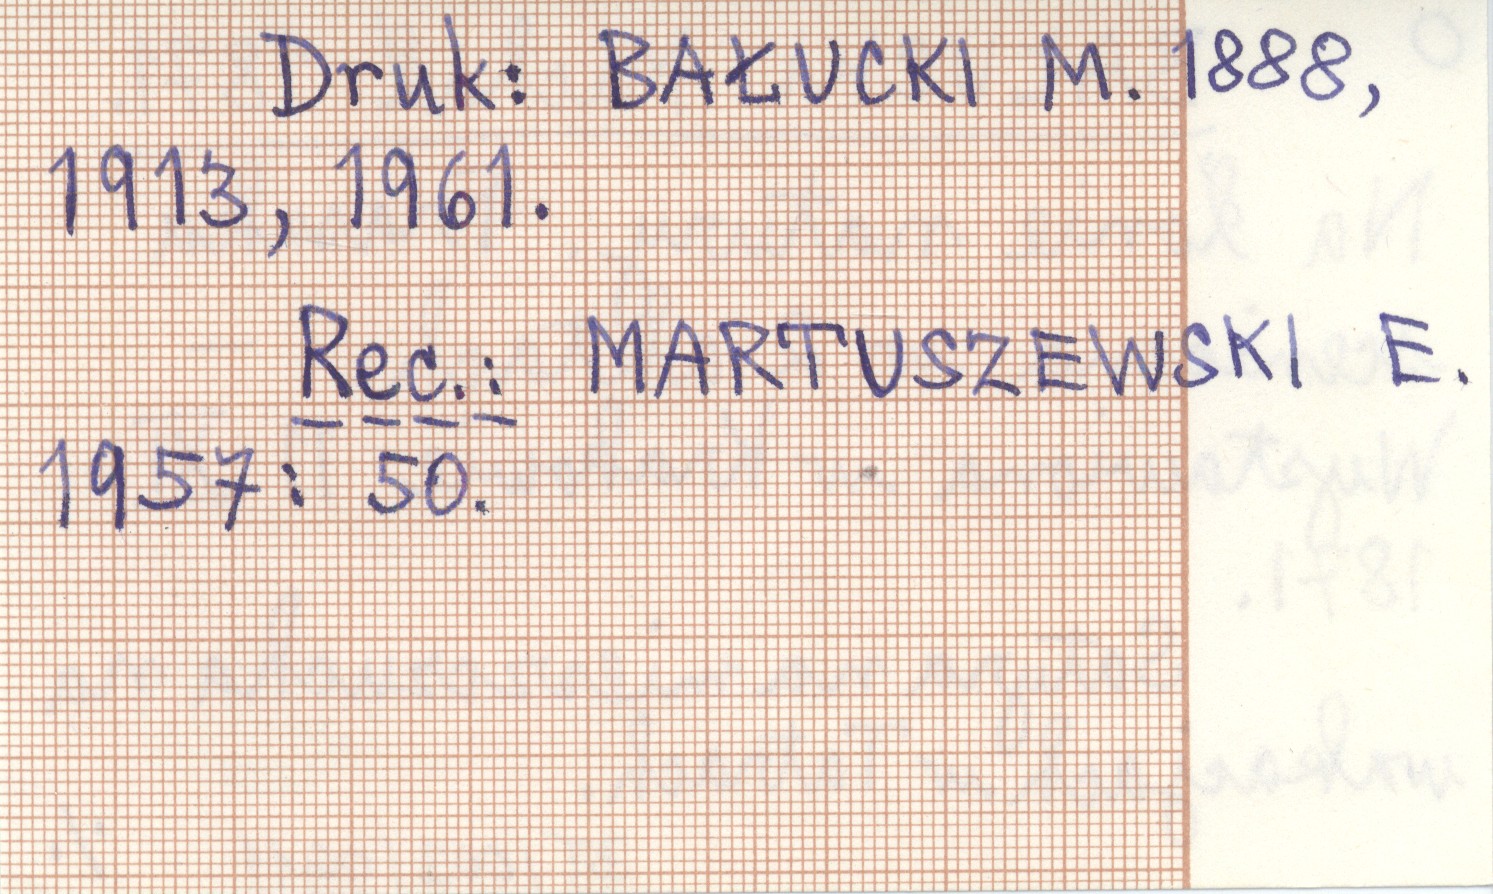 Druk: BAŁUCKI M. 1888,
1913, 1961.
Rec.: MARTUSZEWSKI E.
1957: 50.